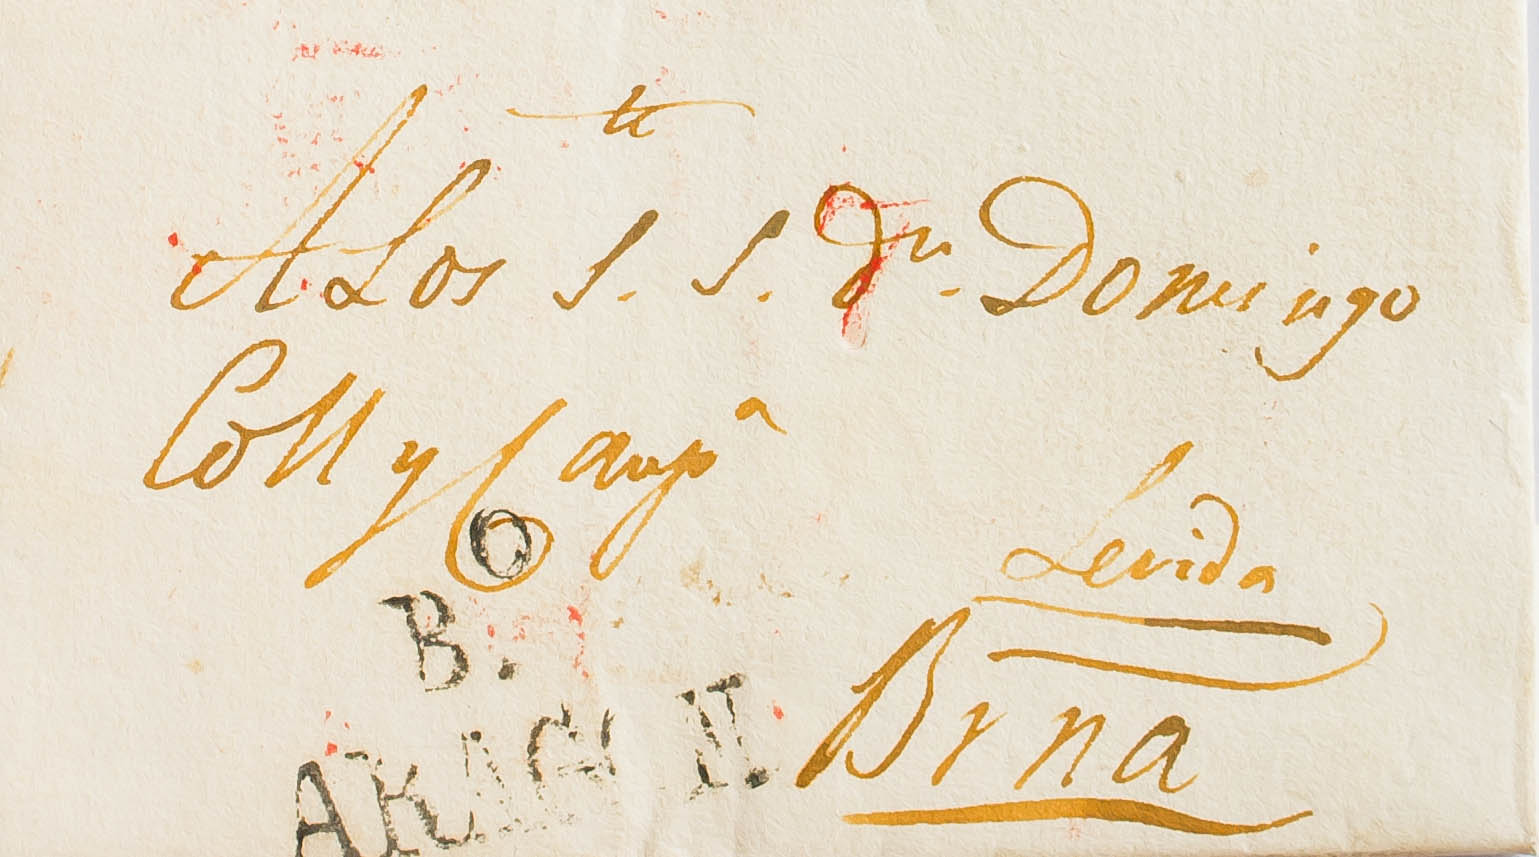 te
A Los S. S. Dn. Domingo
Coll y Compa
Lerida
Brna
O
B.
ARAGON